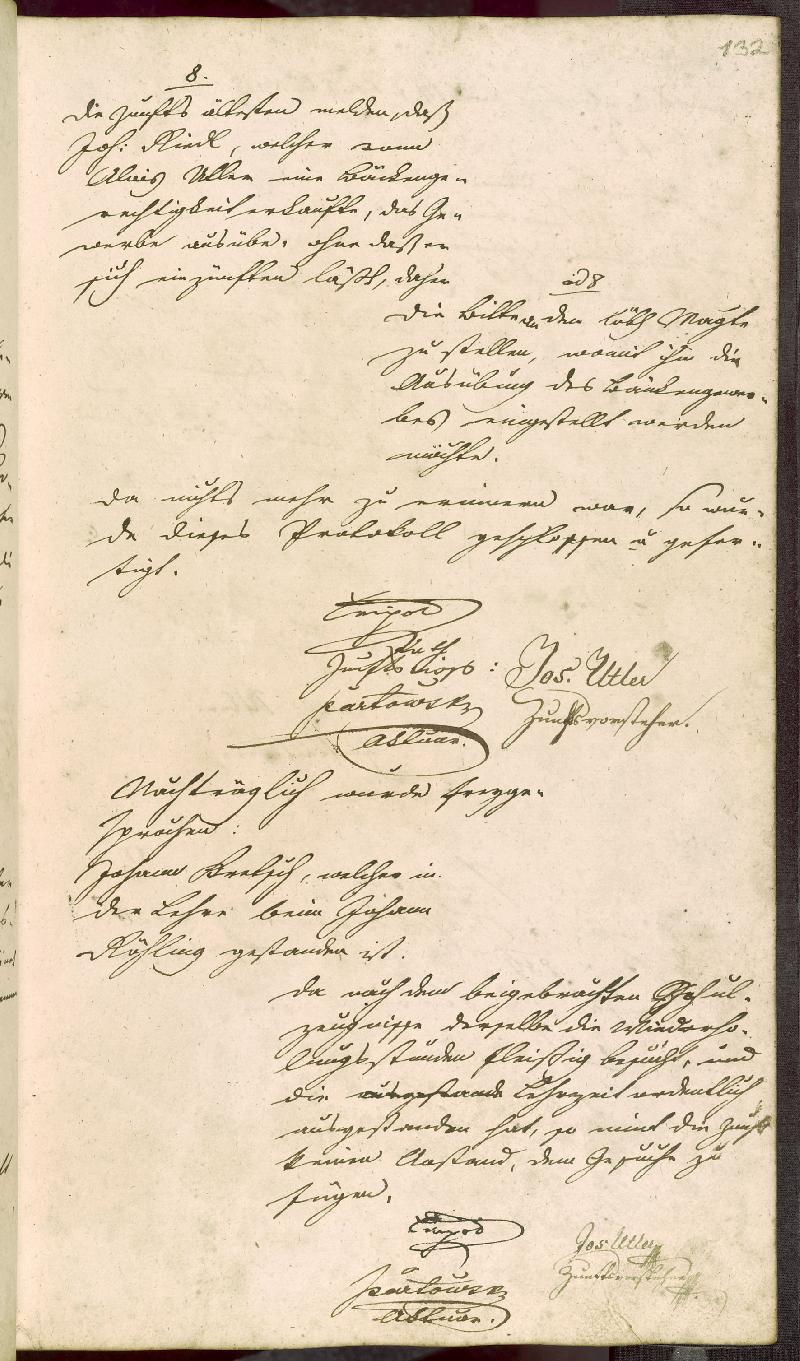 132
8.
Die Zunfts ältesten melden, daß
Joh: Riedl, welcher vom
Alois Utler eine Bäckenge-
rechtigkeit erkaufte, das Ge-
werbe ausübe, ohne daß er
sich einzünften läßt, daher
ad 8
Die Bitte an den löbl Magte
zu stellen, womit ihm die
Ausübung des Bäckengewer-
bes eingestellt werden
möchte.
Da nichts mehr zu erinnern war, so wur-
de dieses Protokoll geschlossen u gefer-
tigt.
Rath
Zunfts Coȓs :
Jos. Utler
Partowsky
Zunftsvorsteher.
Aktuar.
Nachträglich wurde freyge-
sprochen:
Johann Bretsch, welcher in
der Lehre beim Johann
Röhling gestanden ist.
Da nach dem beigebrachten Schul-
zeugnisse derselbe die Wiederho-
lungsstunden fleißig besucht, und
die Lehrzeit ordentlich
ausgestanden hat, so nimt die Zunft
keinen Anstand, dem Gesuche zu
fügen.
Jos. Utler
Zunftsvorsteher
Partowsky
Aktuar.